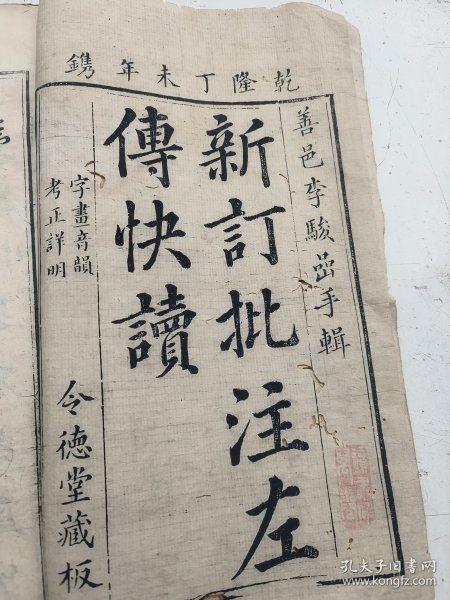 乾隆丁未年鐫
善邑李駿嵒手輯
新訂批注左
傳快讀
字畫音韻
考正詳明
令德堂藏板
孔夫子旧书网
www.kongfz.com